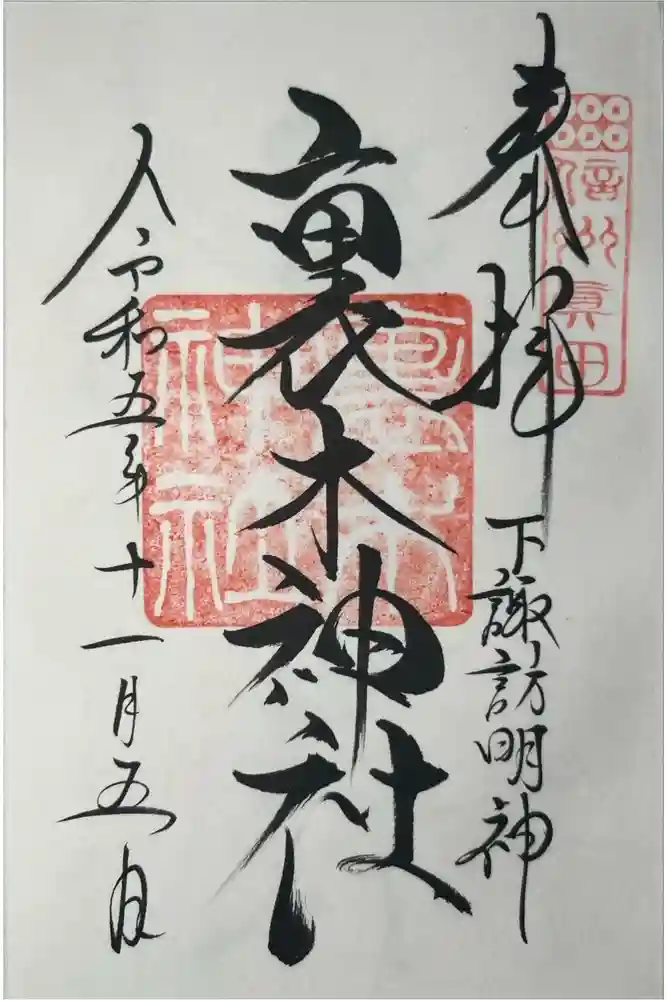 奉拝
信州眞田
下諏訪明神
裏木神社
裏木神社
令和五年十一月五日